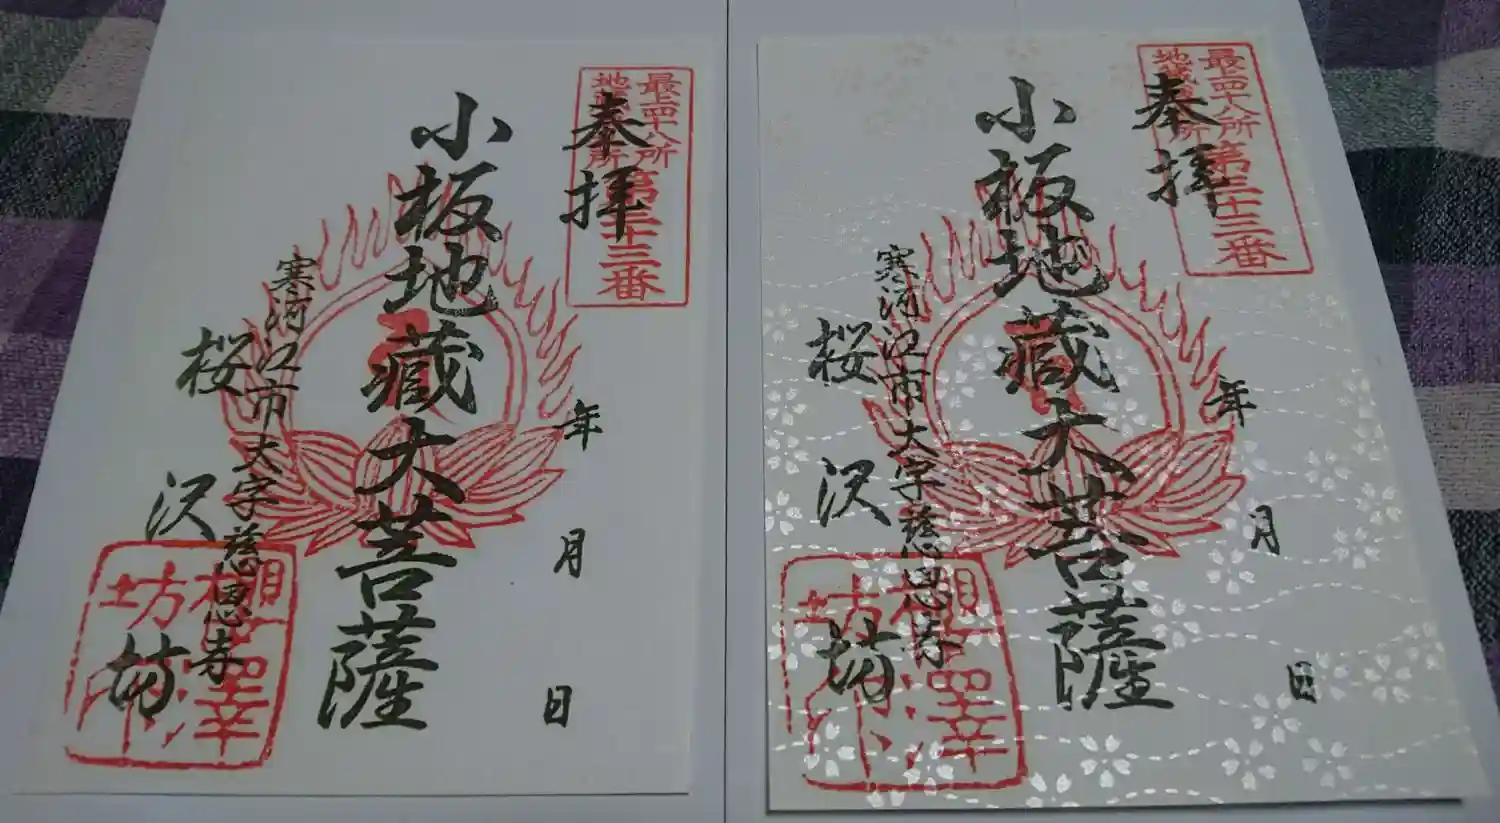 最上四十八所
地蔵
所
第三十三番
奉拝
年
月
日
小板地蔵大菩薩
寒河江市大字慈恩寺
桜沢坊
櫻澤
坊
最上四十八所
地蔵
所
第三十三番
奉拝
年
月
日
小板地蔵大菩薩
寒河江市大字慈恩寺
桜沢坊
櫻澤
坊